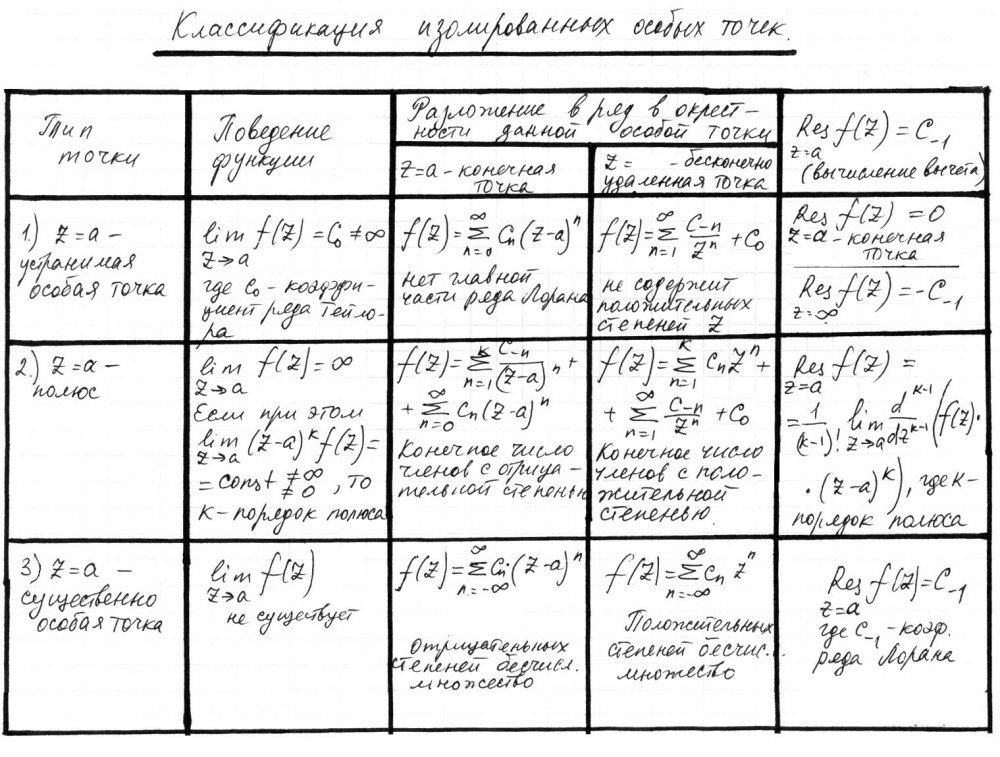 Классификация изолированных особых точек.
Тип
точки
Поведение
функции
Разложение в ряд в окрест-
ности данной особой точки
z=a - конечная
точка
z= - бесконечно
удаленная точка
Res f(z) = C₋₁
z=a
(вычисление вычета)
1.) z=a –
устранимая
особая точка
lim f(z) = C₀ ≠ ∞
z→a
где C₀ - коэффи-
циент ряда Тейло-
ра
f(z) = ∑_{n=0}^{∞} Cₙ(z-a)ⁿ
нет главной
части ряда Лорана
f(z) = ∑_{n=1}^{∞} C₋ₙ/zⁿ + C₀
не содержит
положительных
степеней z
Res f(z) = 0
z=a - конечная
точка
Res f(z) = -C₋₁
z=∞
2.) z=a –
полюс
lim f(z) = ∞
z→a
Если при этом
lim (z-a)ᵏ f(z) =
z→a
= const ≠∞ ≠0 , то
к - порядок полюса
f(z) = ∑_{n=1}^{k} C₋ₙ/(z-a)ⁿ +
+ ∑_{n=0}^{∞} Cₙ(z-a)ⁿ
Конечное число
членов с отрица-
тельной степенью
f(z) = ∑_{n=1}^{k} Cₙzⁿ +
+ ∑_{n=1}^{∞} C₋ₙ/zⁿ + C₀
Конечное число
членов с поло-
жительной
степенью.
Res f(z) =
z=a
= 1/(k-1)! lim_{z→a} d^{k-1}/dz^{k-1} (f(z)·
·(z-a)ᵏ), где к-
порядок полюса
3) z=a –
существенно
особая точка
lim f(z)
z→a
не существует
f(z) = ∑_{n=-∞}^{∞} Cₙ·(z-a)ⁿ
Отрицательных
степеней бесчисл.
множество
f(z) = ∑_{n=-∞}^{∞} Cₙ zⁿ
Положительных
степеней бесчис..
множество
Res f(z) = C₋₁
z=a
где C₋₁ - коэф.
ряда Лорана